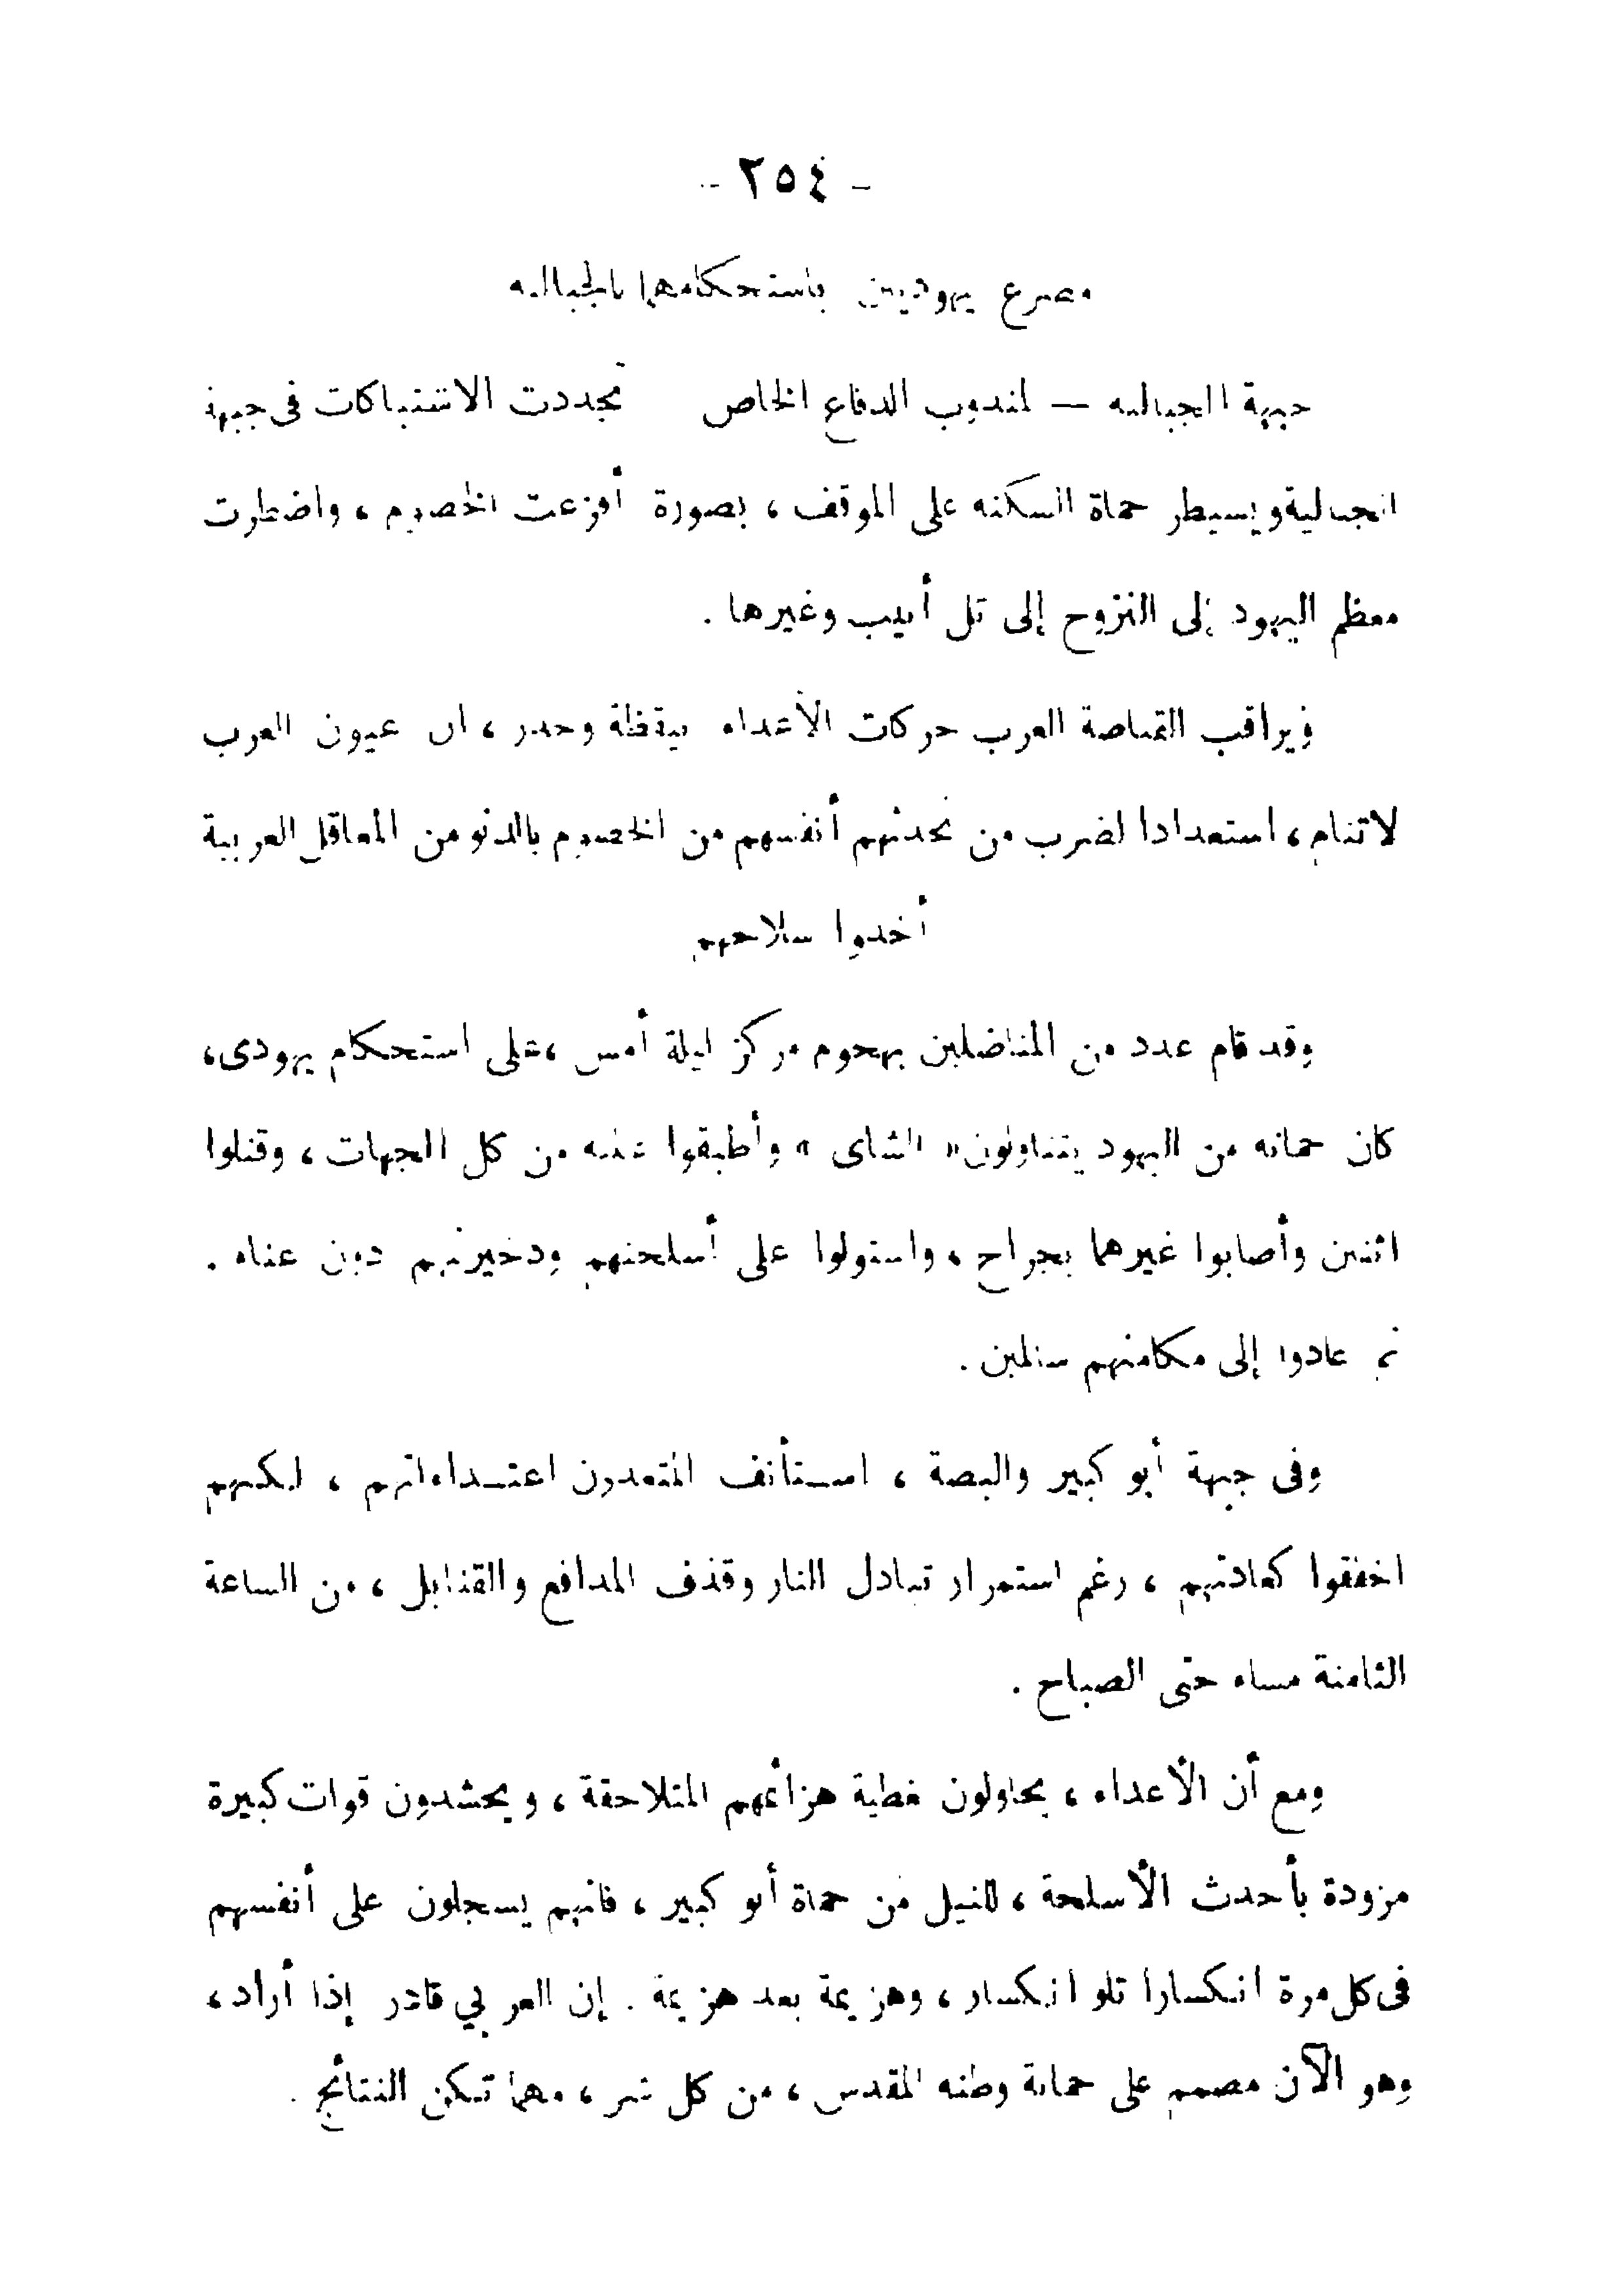 - ٢٥٤ -
مصرع يهوديين باستحكامها بالجباليه
جبهة الجباليه — لمندوب الدفاع الخاص تجددت الاشتباكات فى جبهة
الجبالية ويسيطر حماة السكنه على الموقف ، بصورة أفزعت الخصوم ، واضطرت
معظم اليهود إلى النزوح إلى تل أبيب وغيرها .
ويراقب القناصة العرب حركات الأعداء بيقظة وحذر ، ان عيون العرب
لاتنام ، استعدادا لضرب من تحدثهم أنفسهم من الخصوم بالدنو من المعاقل العربية
أخذوا سلاحهم
وقد قام عدد من المناضلين بهجوم مركز ليلة أمس ، على استحكام يهودى ،
كان حماته من اليهود يتناولون « الشاى » وأطبقوا عليه من كل الجهات ، وقتلوا
اثنين وأصابوا غيرهما بجراح ، واستولوا على أسلحتهم وذخيرتهم دون عناء .
ثم عادوا إلى مكامنهم سالمين .
وفى جبهة أبو كبير والبصة ، استأنف المتعدون اعتـداءاتهم ، لكنهم
اخفقوا كعادتهم ، رغم استمرار تبادل النار وقذف المدافع والقنابل ، من الساعة
الثامنة مساء حتى الصباح .
ومع أن الأعداء ، يحاولون تغطية هزائمهم المتلاحقة ، ويحشدون قوات كبيرة
مزودة بأحدث الأسلحة ، للنيل من حماة أبو كبير ، فانهم يسجلون على أنفسهم
فى كل مرة انكسارا تلو انكسار ، وهزيمة بعد هزيمة . إن العربي قادر إذا أراد ،
وهو الآن مصمم على حماية وطنه المقدس ، من كل شر ، مهما تكن النتائج .